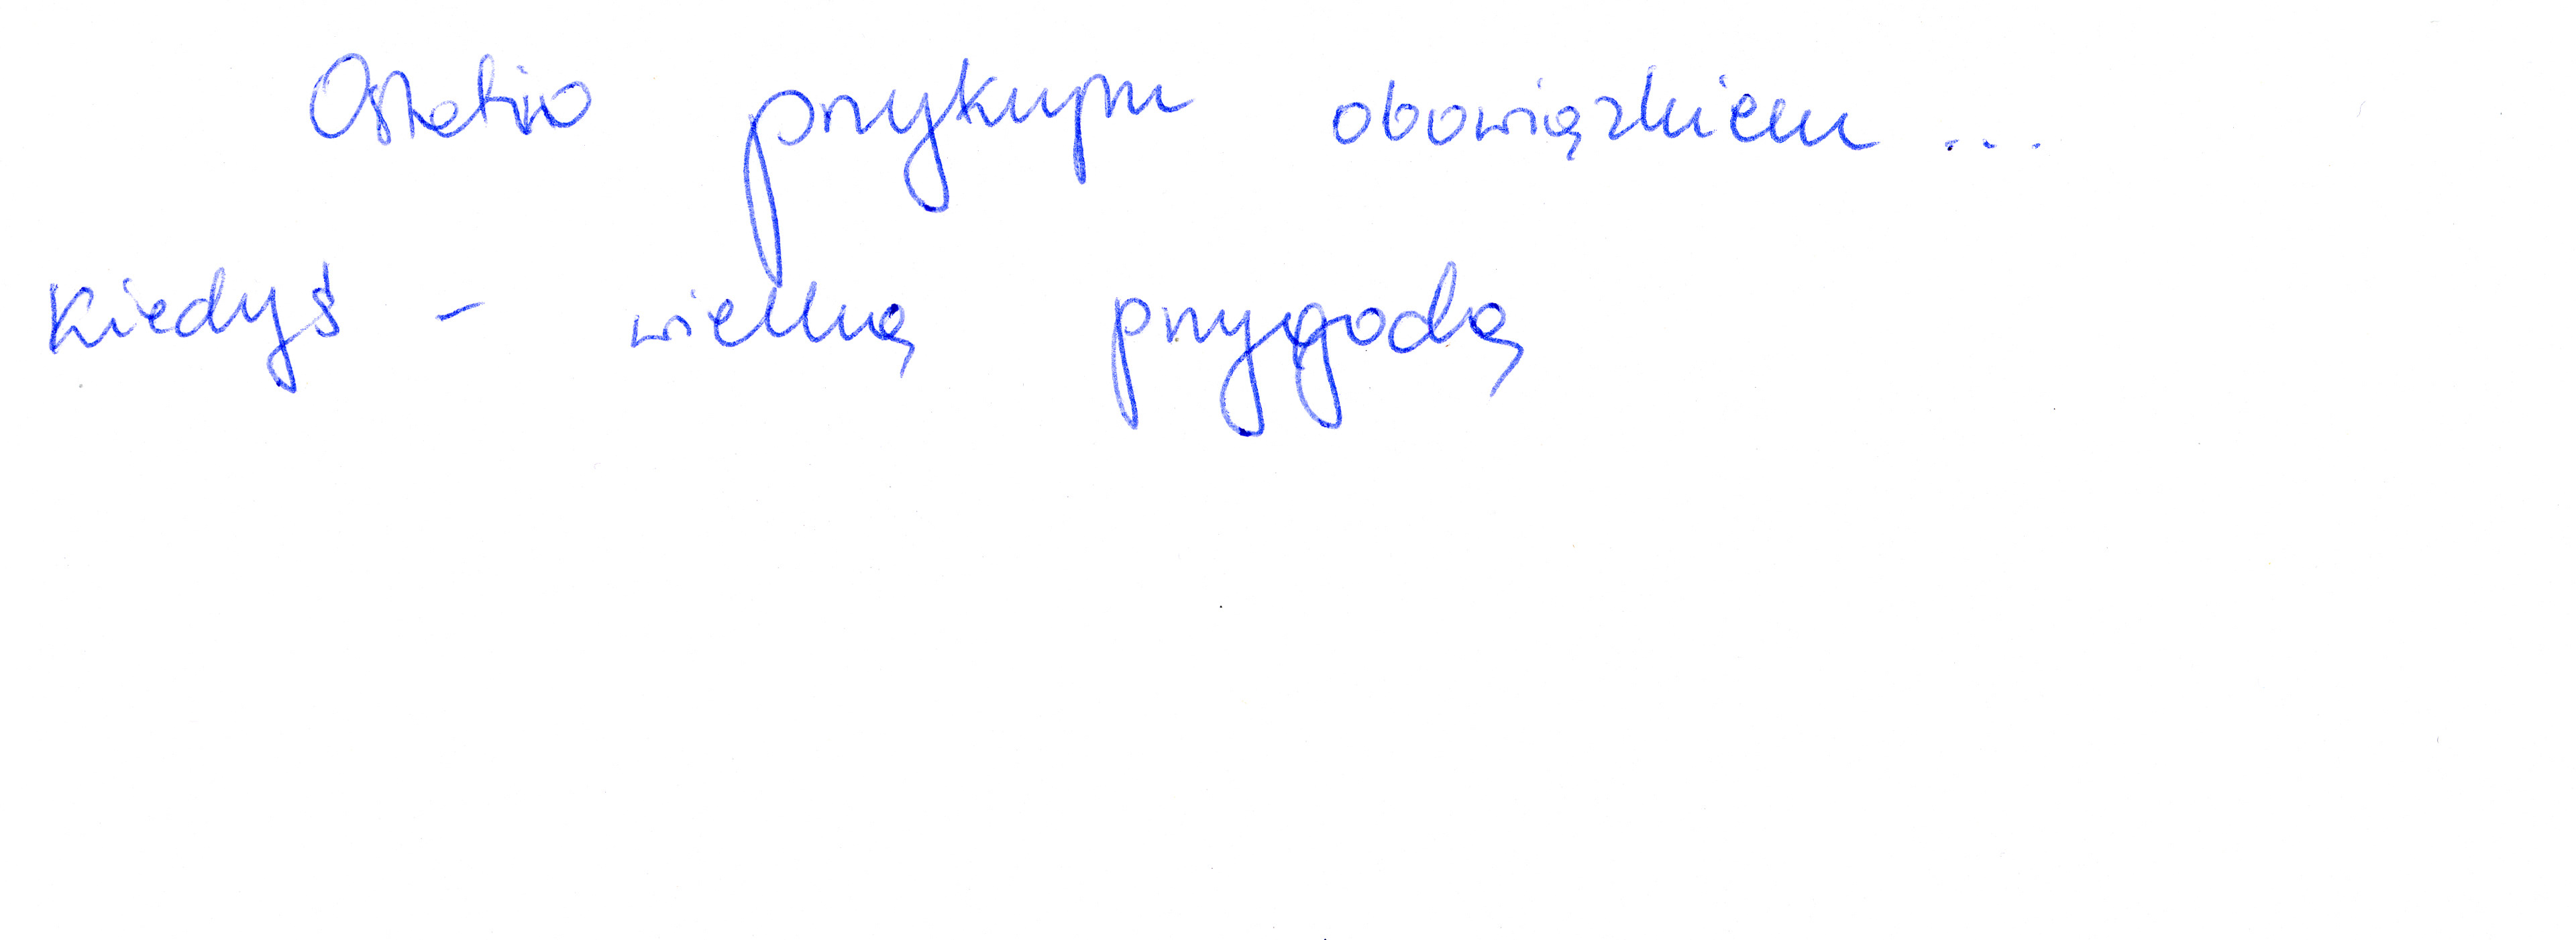 Ostatnio przykrym obowiązkiem...
Kiedyś - wielką przygodą